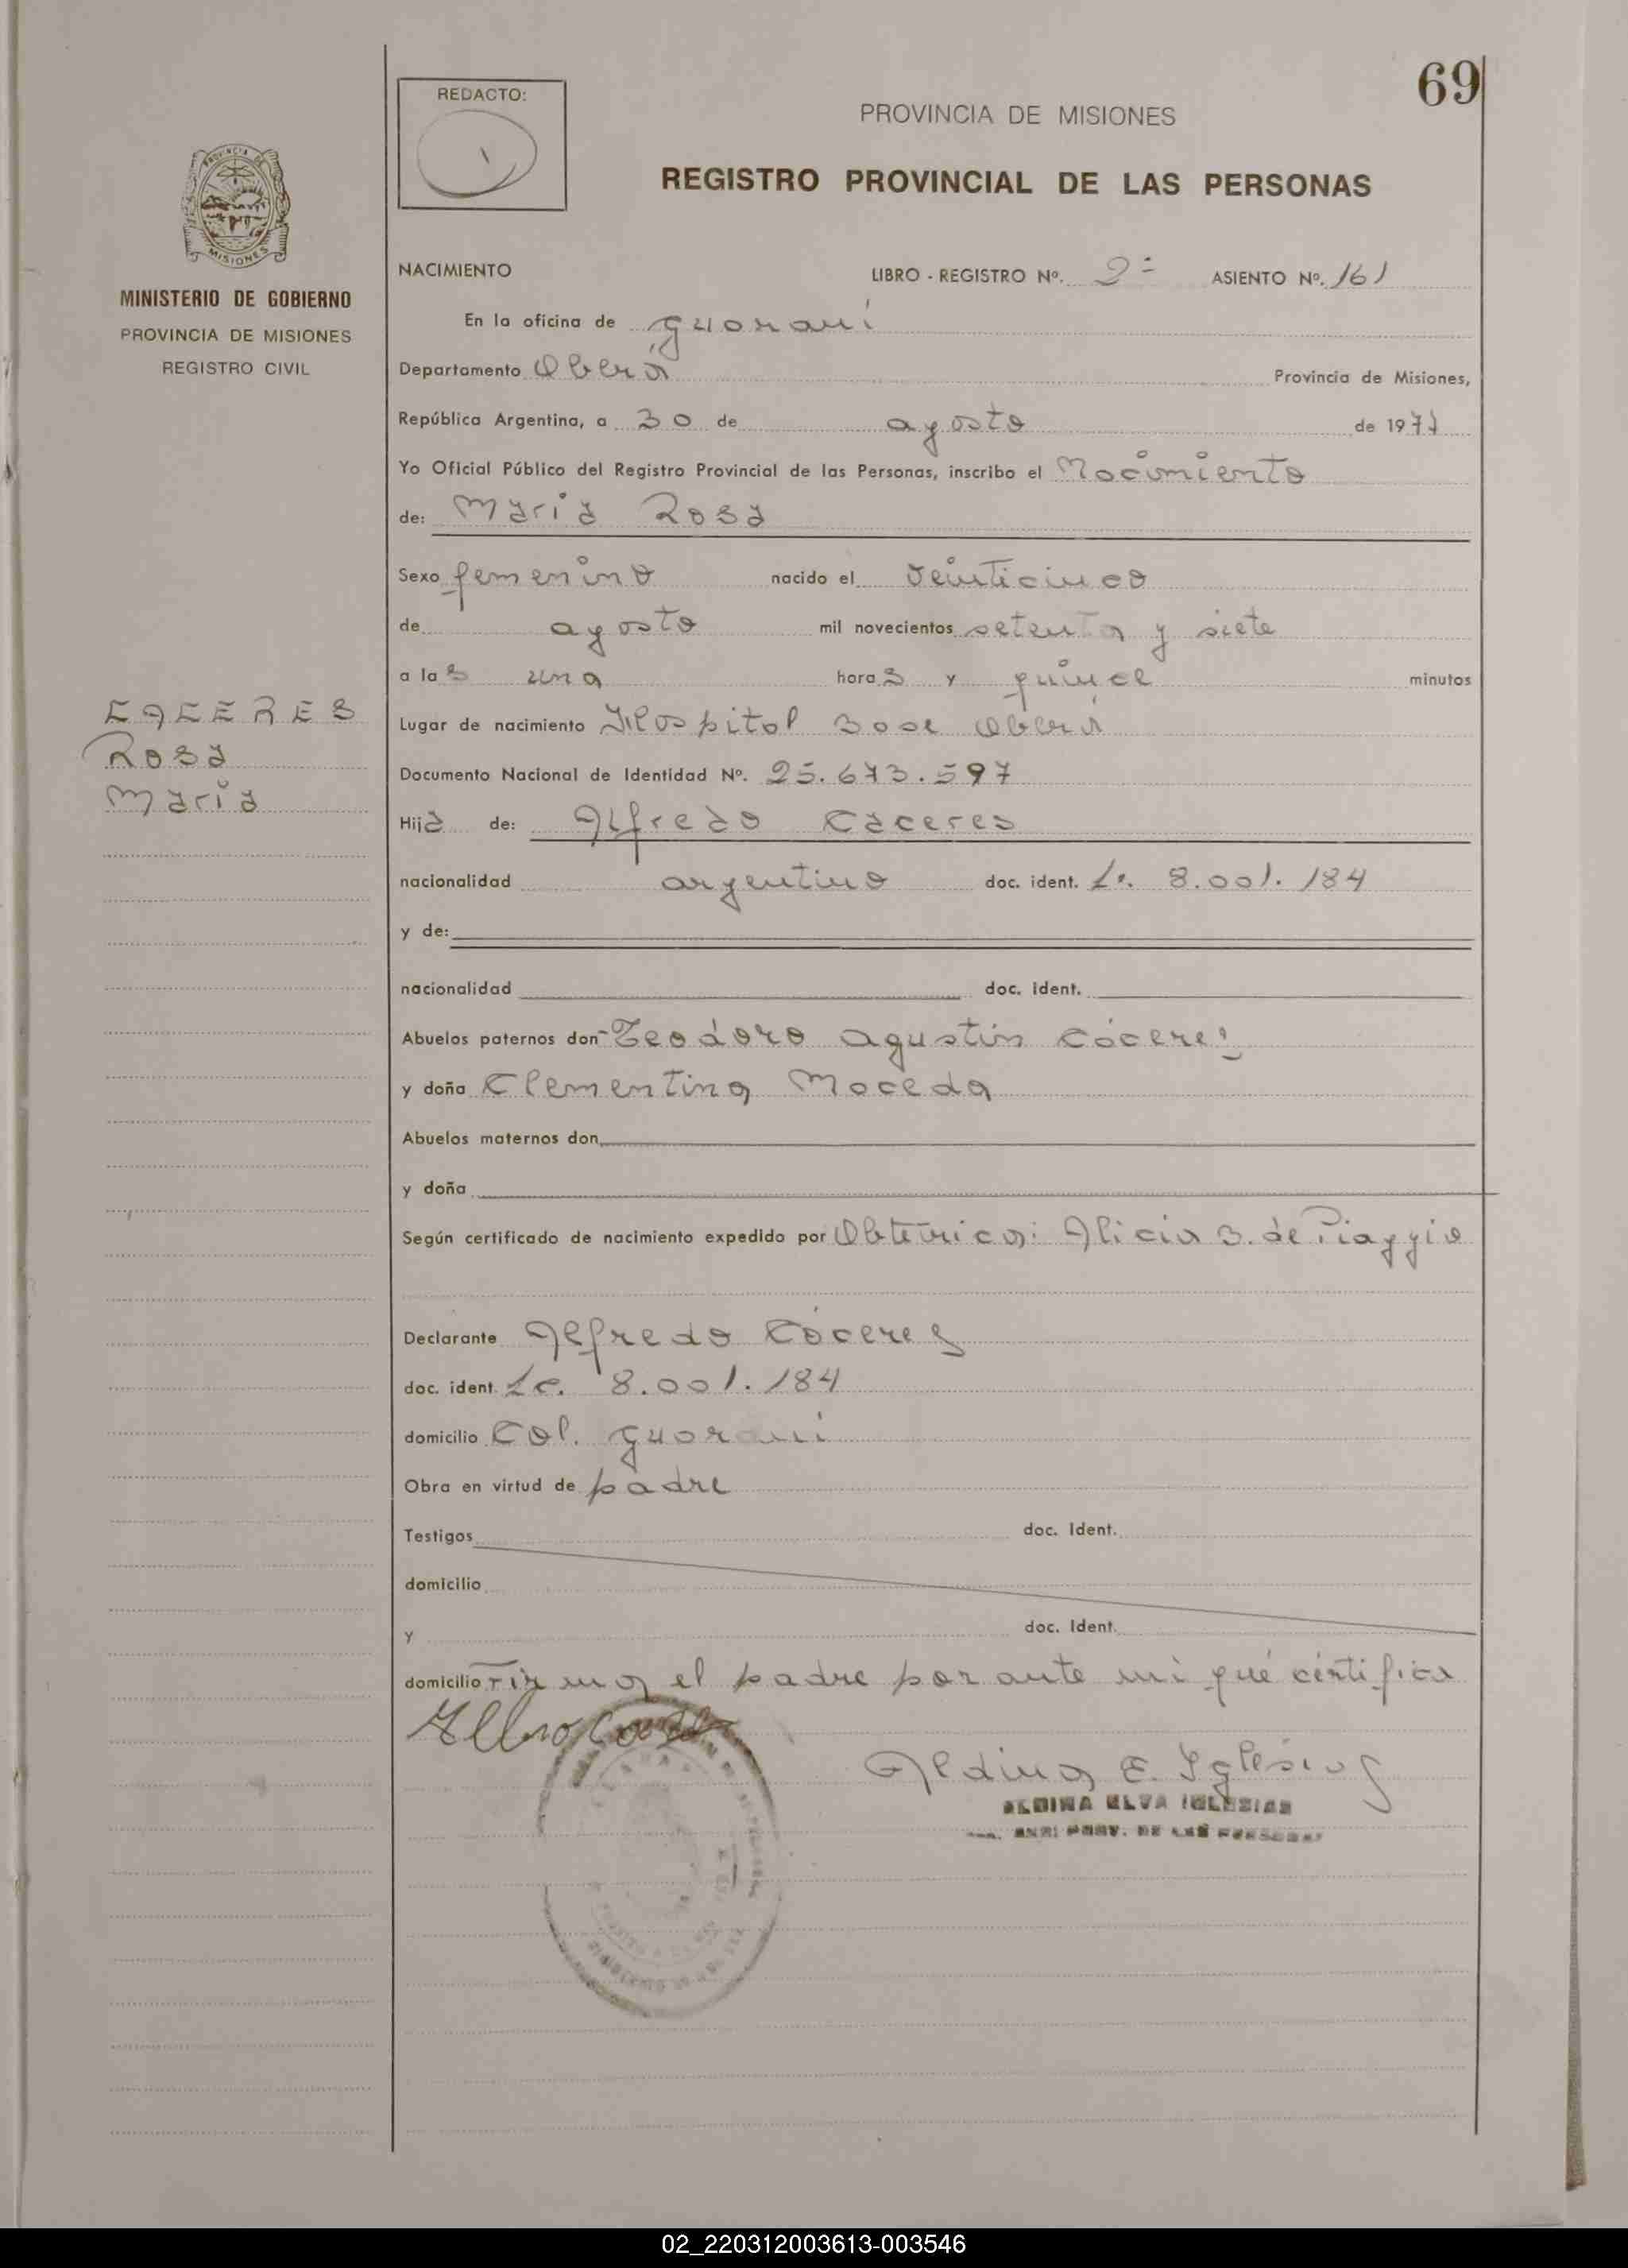 69
REDACTO:
PROVINCIA DE MISIONES
REGISTRO PROVINCIAL DE LAS PERSONAS
PROVINCIA DE
MISIONES
MINISTERIO DE GOBIERNO
PROVINCIA DE MISIONES
REGISTRO CIVIL
NACIMIENTO LIBRO - REGISTRO Nº. 2º ASIENTO Nº. 161
En la oficina de guaraní
Departamento Oberá Provincia de Misiones,
República Argentina, a 30 de agosto de 1977
Yo Oficial Público del Registro Provincial de las Personas, inscribo el Nacimiento
de: Maria Rosa
Sexo femenino nacido el veinticinco
de agosto mil novecientos setenta y siete
a las una horas y quince minutos
CACERES
Rosa
Maria
Lugar de nacimiento Hospital Oberá
Documento Nacional de Identidad Nº. 25.673.597
Hija de: Alfredo Caceres
nacionalidad argentino doc. ident. Le. 8.001.184
y de:
nacionalidad doc. ident.
Abuelos paternos don Teodoro Agustín Cáceres
y doña Clementina Maceda
Abuelos maternos don
y doña
Según certificado de nacimiento expedido por Obtetrica: Alicia B. de Piaggio
Declarante Alfredo Cáceres
doc. ident. Le. 8.001.184
domicilio Col. guaraní
Obra en virtud de padre
Testigos doc. Ident.
domicilio
y doc. Ident.
domicilio Firma el padre por ante mi qué certifica
Aldina E. Iglesias
ALDINA ELVA IGLESIAS
PROV. DE LAS PERSONAS
02_220312003613-003546